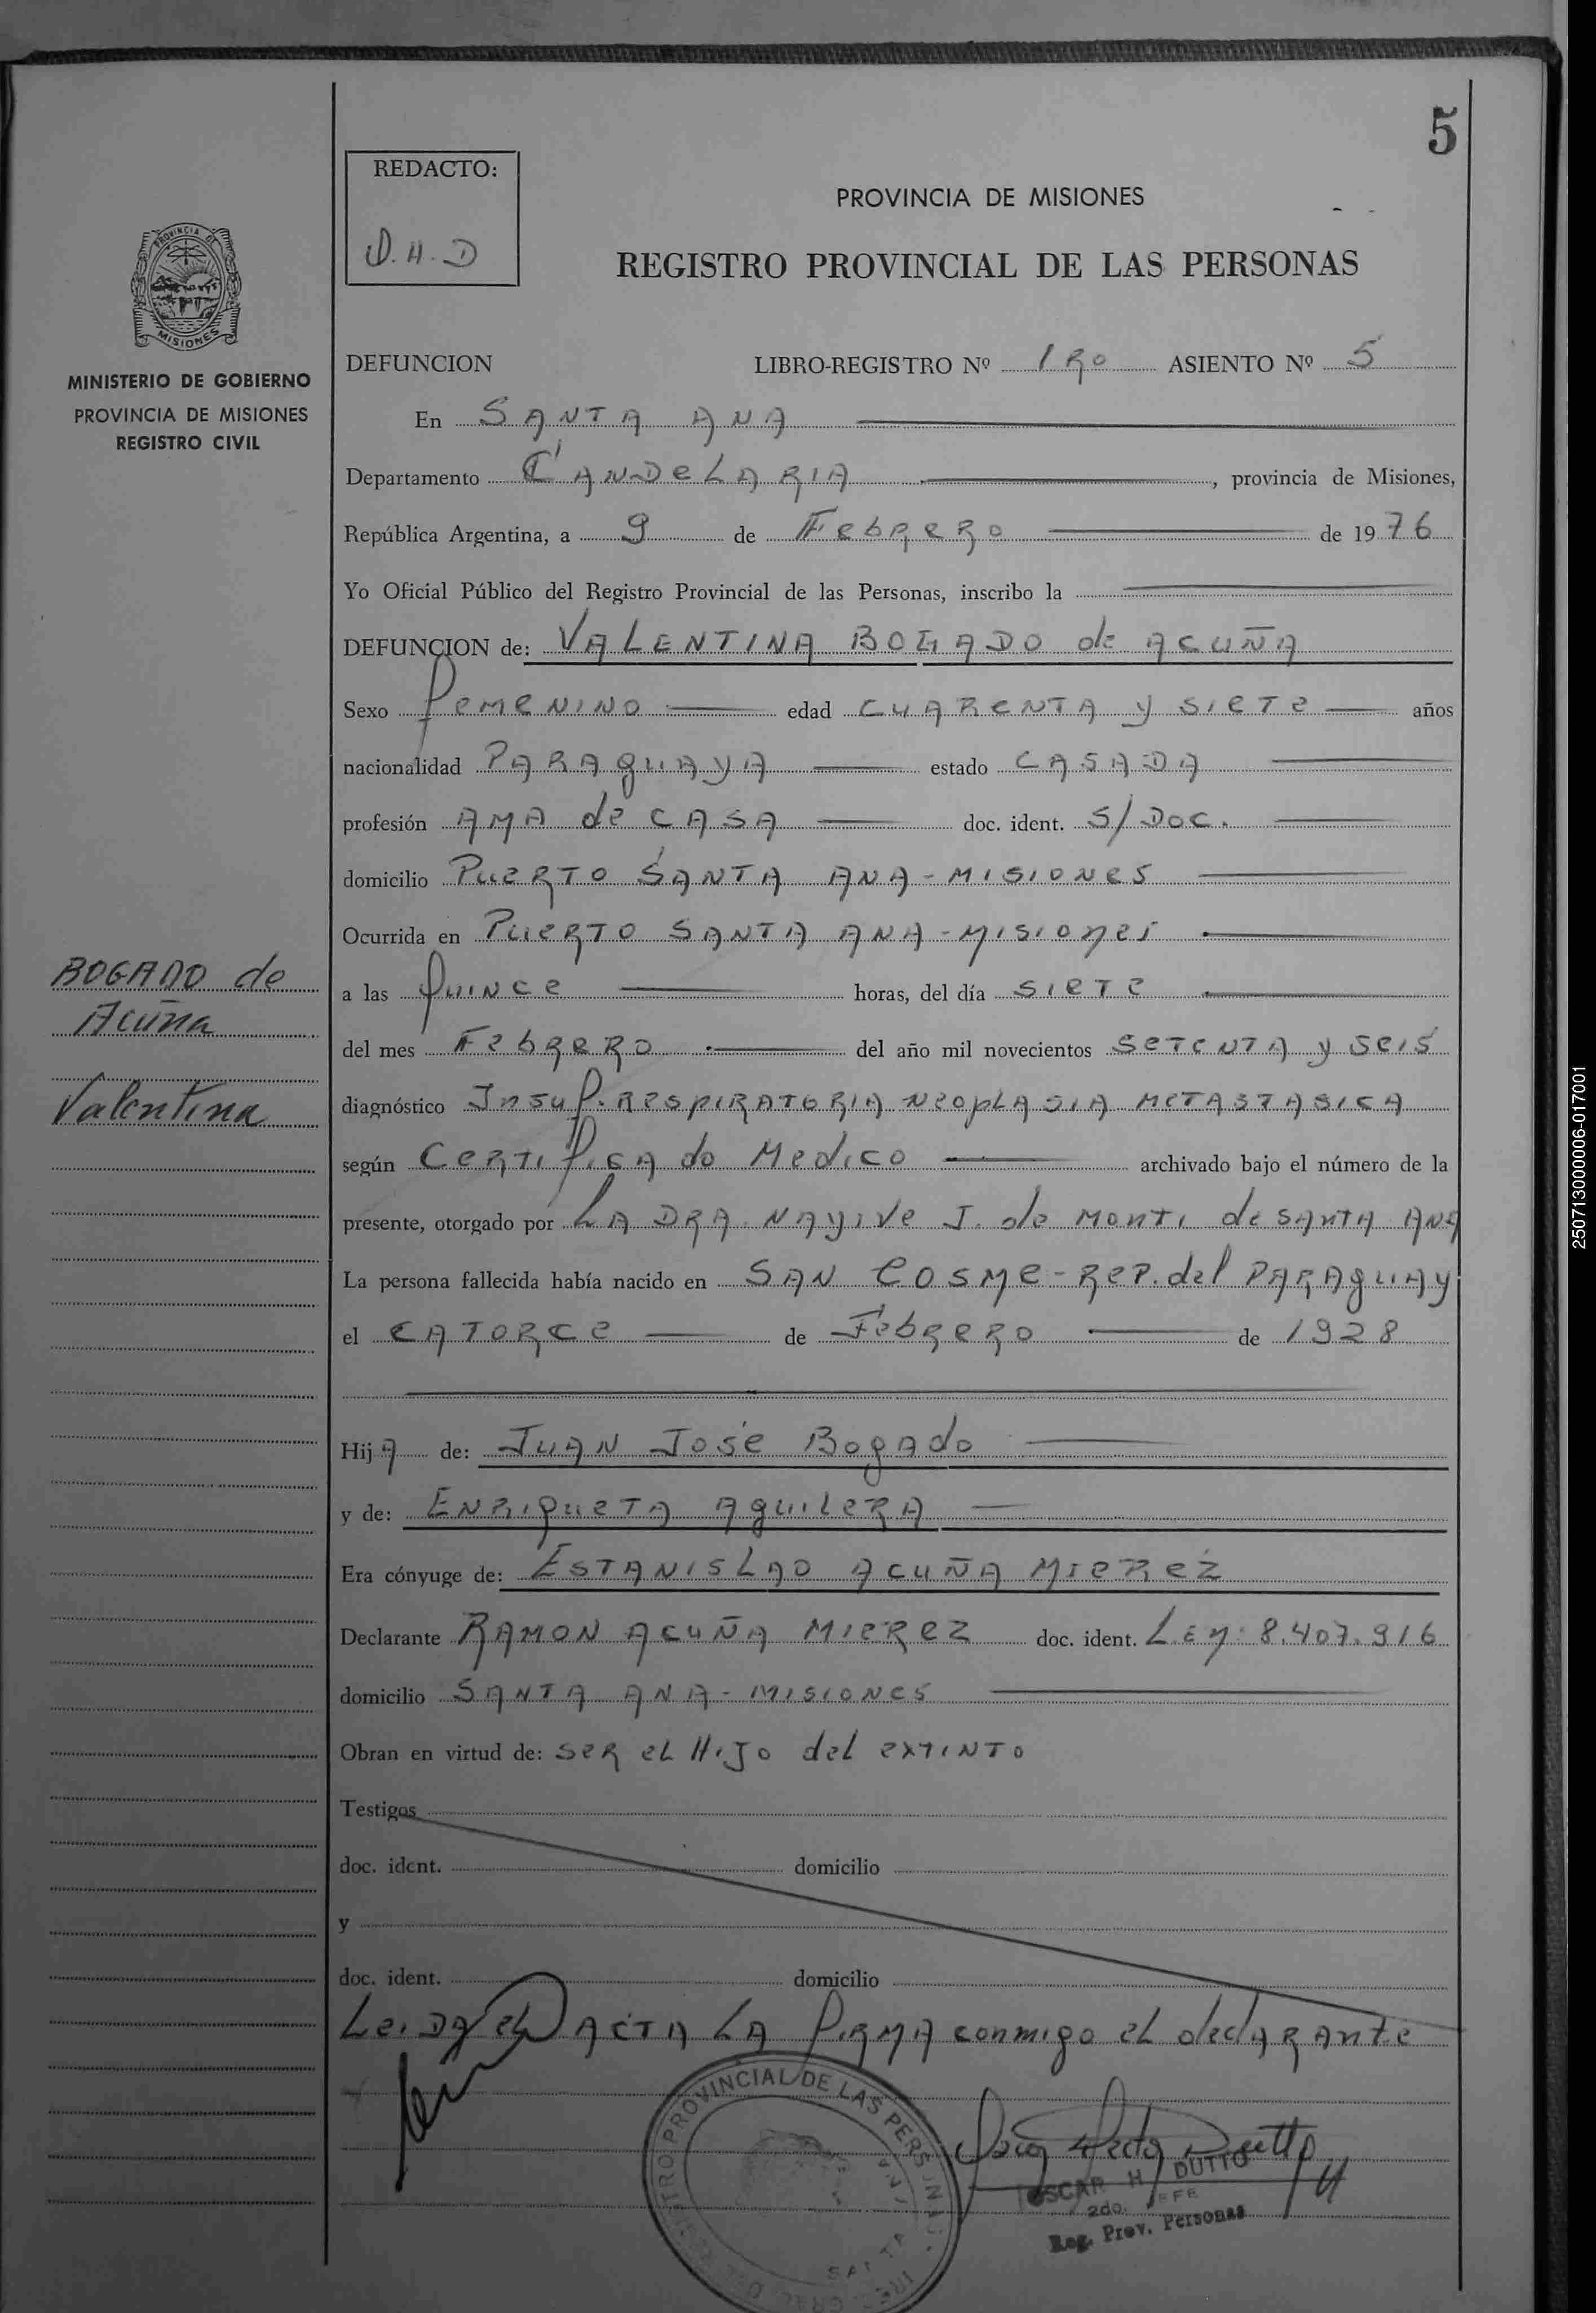 5
REDACTO:
O.H.D
PROVINCIA DE MISIONES
REGISTRO PROVINCIAL DE LAS PERSONAS
PROVINCIA DE
MISIONES
MINISTERIO DE GOBIERNO
PROVINCIA DE MISIONES
REGISTRO CIVIL
DEFUNCION LIBRO-REGISTRO Nº 1Ro ASIENTO Nº 5
En SANTA ANA
Departamento CANDeLARIA, provincia de Misiones,
República Argentina, a 9 de Febrero de 1976
Yo Oficial Público del Registro Provincial de las Personas, inscribo la
DEFUNCION de: VALENTINA BOGADO de ACUÑA
Sexo femeNINO edad CUAReNTA y SIeTe años
nacionalidad PARAguAyA estado CASADA
profesión AMA de CASA doc. ident. S/Doc.
domicilio PueRTO SANTA ANA-MISIONeS
Ocurrida en PueRTO SANTA ANA-MISIONes
a las QuINce horas, del día SIeTe
del mes FebReRO del año mil novecientos SeTeNTA y SeIS
diagnóstico Insuf. RespIRATORIA NeopLASIA MeTASTASICA
según CeRTIfICAdo MedIco archivado bajo el número de la
presente, otorgado por LA DRA. NAyIVe J. de MONTI de SANTA ANA
La persona fallecida había nacido en SAN COSMe-ReP. del PARAguAy
el CATORCe de FebReRO de 1928
BOGADO de
Acuña
Valentina
Hija de: JUAN JOSé BOgAdo
y de: ENRIQueTA AguILeRA
Era cónyuge de: ESTANISLAO ACUÑA MIeReZ
Declarante RAMON ACUÑA MIeReZ doc. ident. L.E.Nº: 8.407.916
domicilio SANTA ANA-MISIONeS
Obran en virtud de: SeR eL HIJo del exTINTO
Testigos
doc. ident. domicilio
y
doc. ident. domicilio
LeIDA eL ACTA LA fIRMA conmigo eL declARAnte
REGISTRO PROVINCIAL DE LAS PERSONAS
OSCAR H. DUTTO
2do. JEFE
Reg. Prov. Personas
250713000006-017001